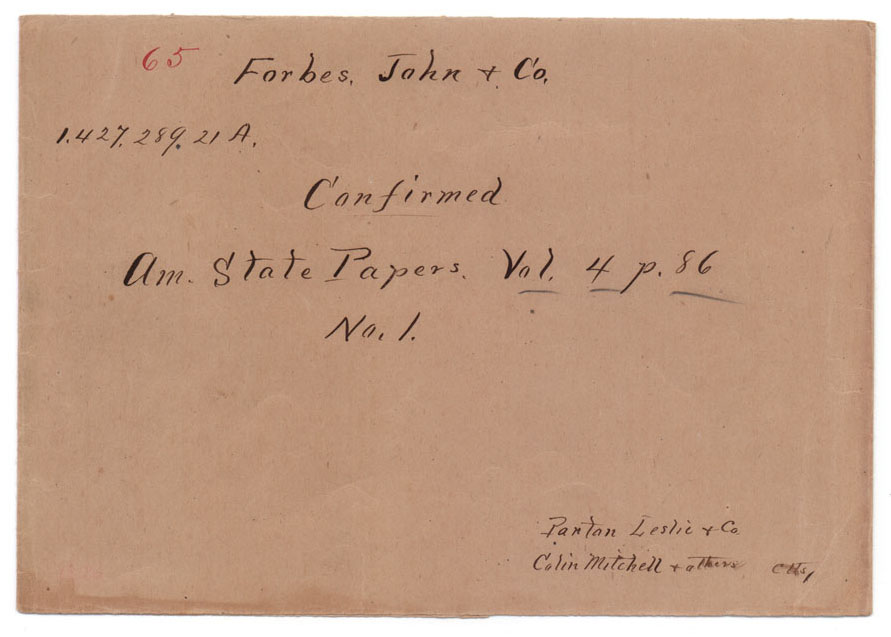 65
Forbes, John & Co.
1.427.289.21 A.
Confirmed
Am. State Papers. Vol. 4 p. 86
No. 1.
Panton Leslie & Co
Colin Mitchell & others